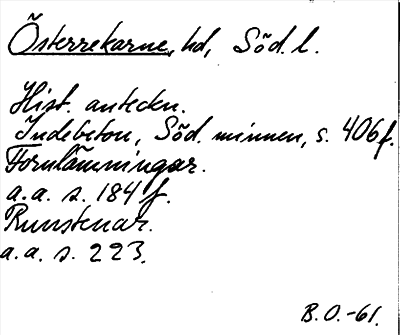 Österrekarne, hd, Söd. l.
Hist. anteckn.
Indebetou, Söd. minnen, s. 406 f.
Fornlämningar.
a. a. s. 184 f.
Runstenar.
a. a. s. 223.
B. O. -61.